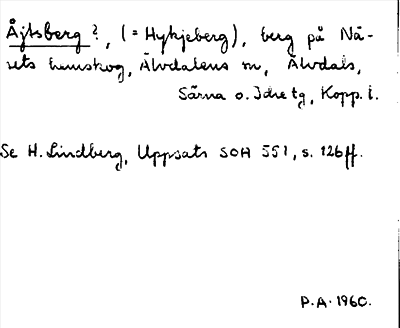 Åjtsberg?, (= Hykjeberg), berg på Nä-
sets hemskog, Älvdalens sn, Älvdals,
Särna o. Idre tg, Kopp. l.
Se H. Lindberg, Uppsats SOH 551, s. 126 ff.
P.A. 1960.